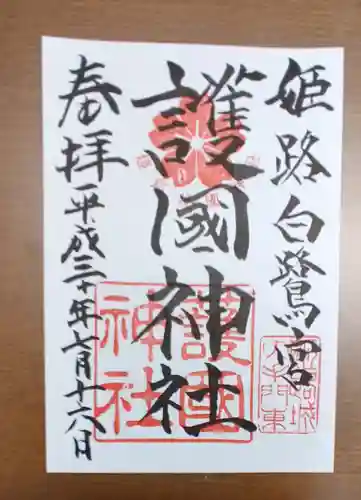 姫路白鷺宮
護國神社
奉拝
平成三十年七月十六日
護國
神社